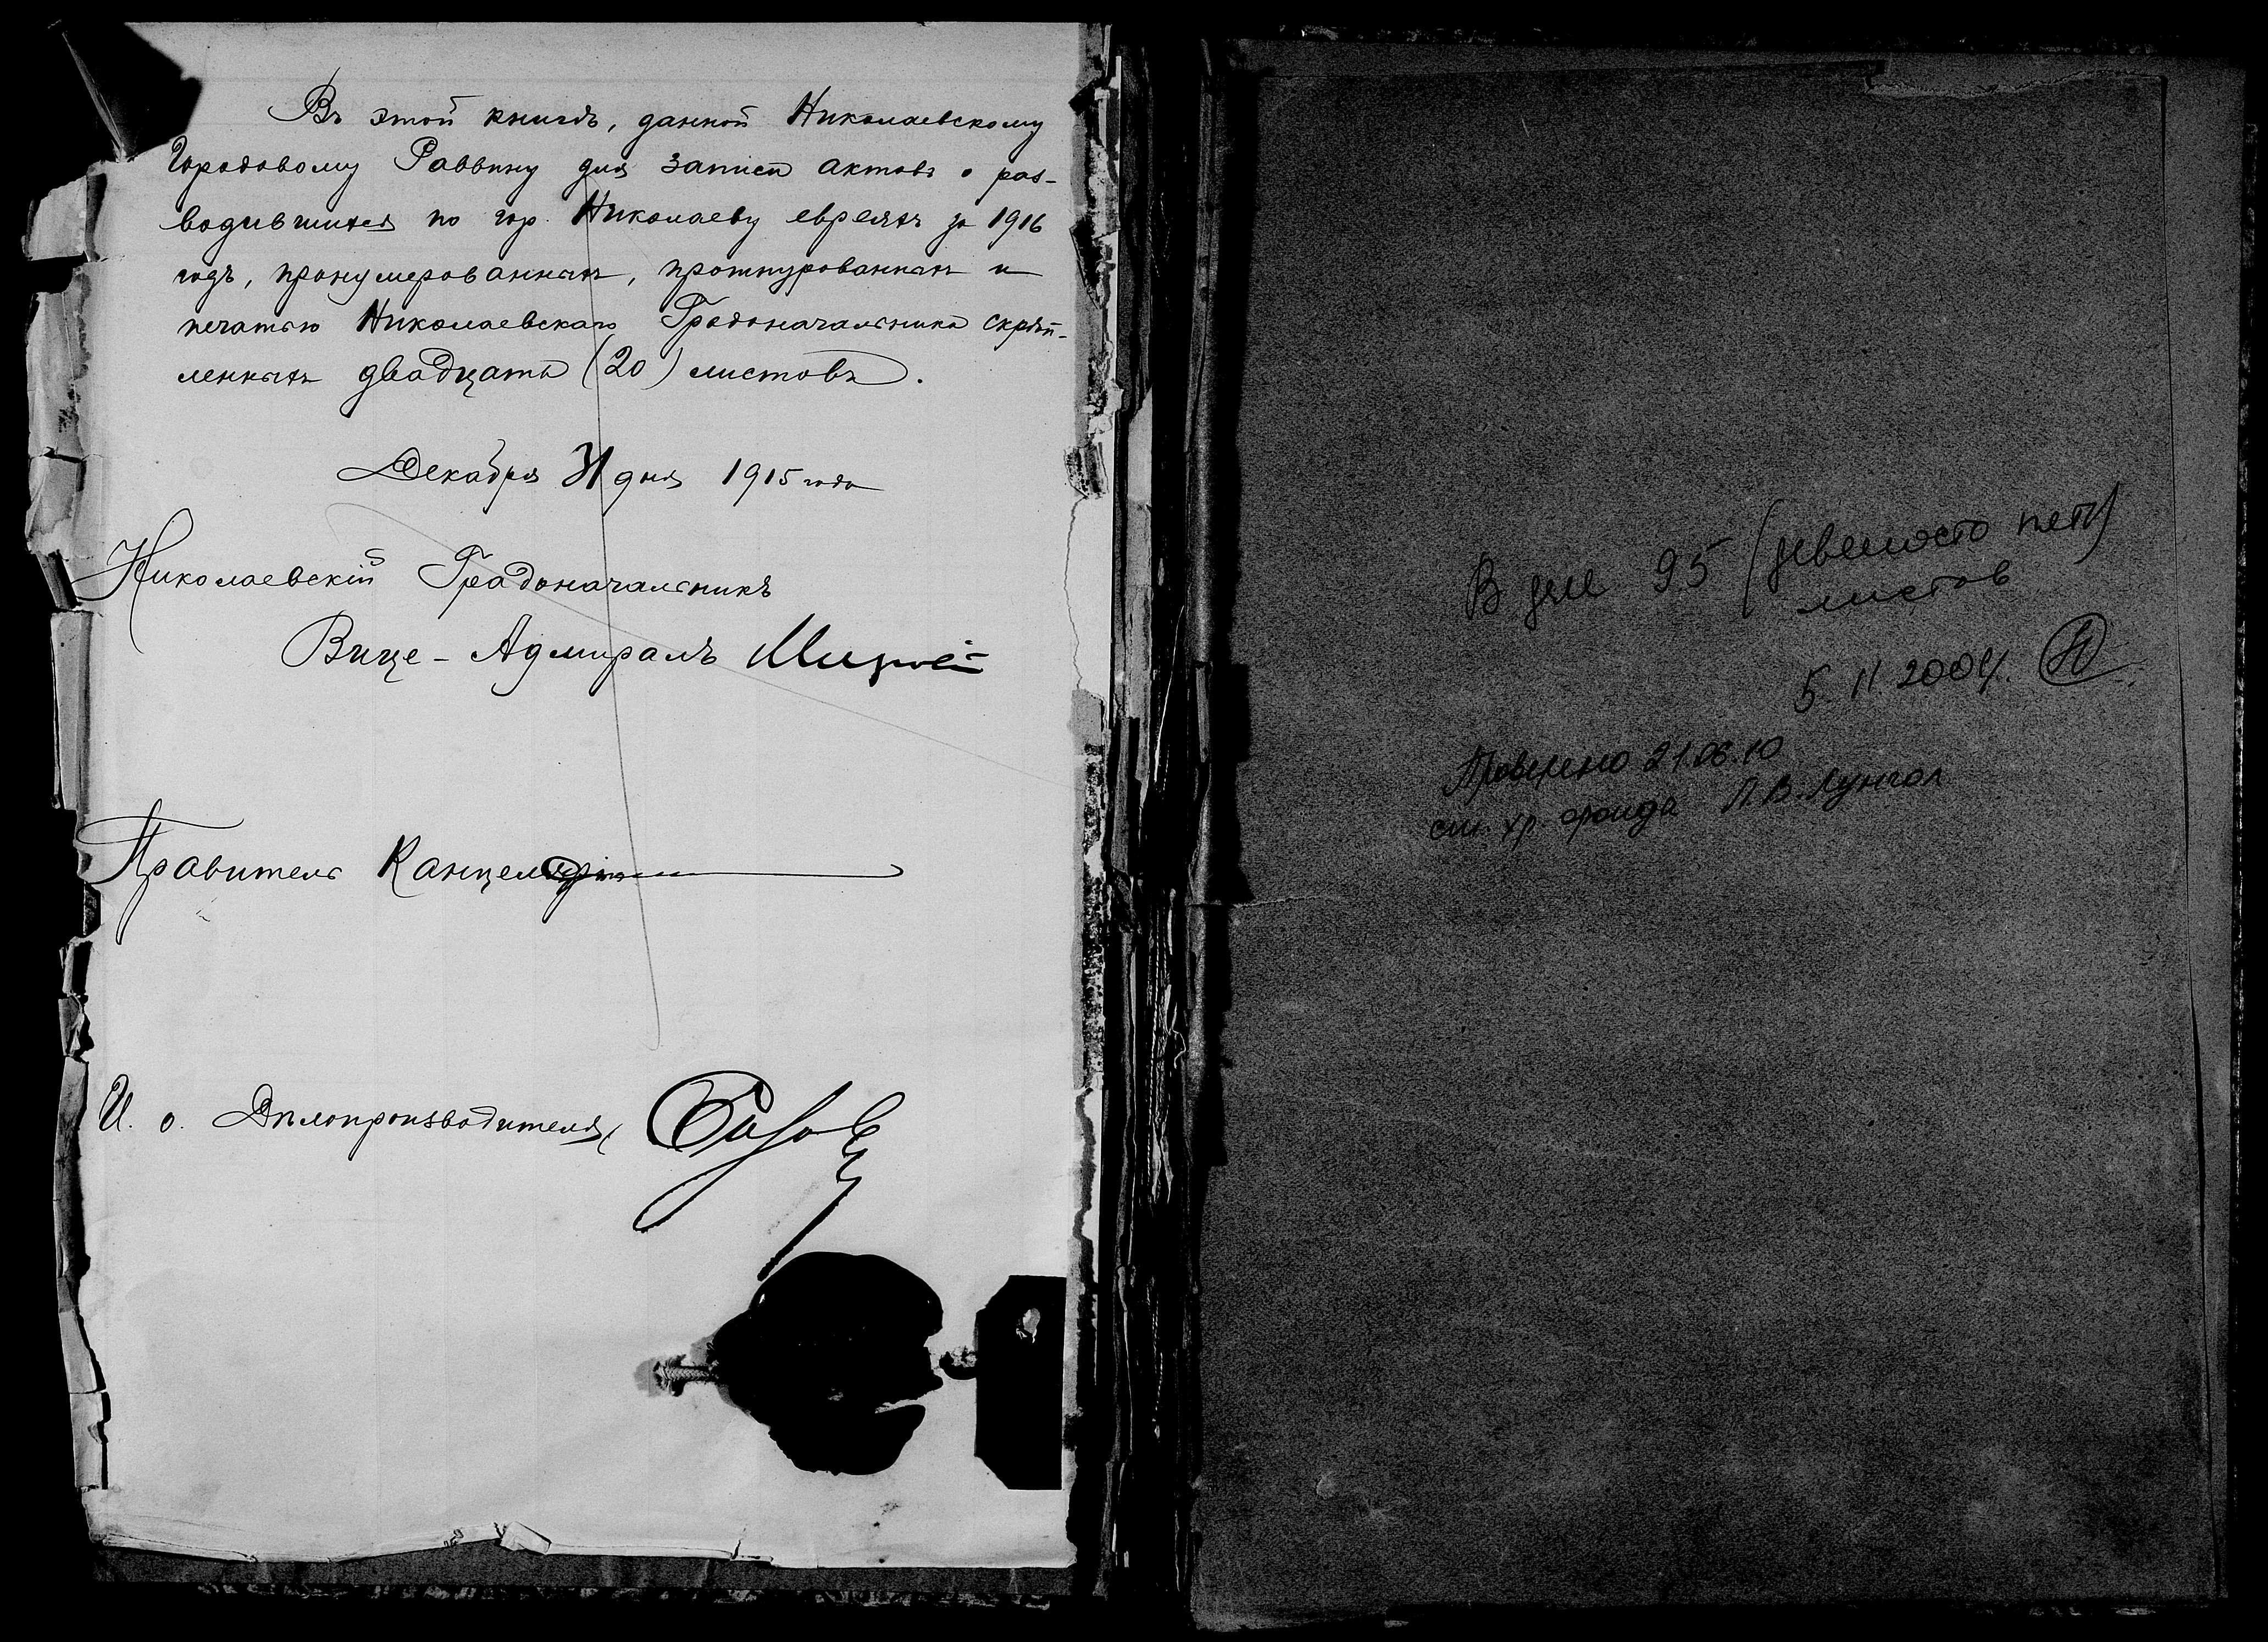 Въ этой книгѣ, данной Николаевскому
Городовому Раввину для записи актовъ о раз-
водившихся по гор. Николаеву евреяхъ за 1916
годъ, пронумерованныхъ, прошнурованныхъ и
печатью Николаевскаго Градоначальника скрѣп-
ленныхъ двадцать (20) листовъ.
Декабря 31 дня 1915 года
Николаевскій Градоначальникъ
Вице-Адмиралъ
Правитель Канцеляріи
И. о. Дѣлопроизводителя,
В деле 95 (девяносто пять)
листов
5.11.2004.
Проверено 21.06.10
хр. фонда Л.В.